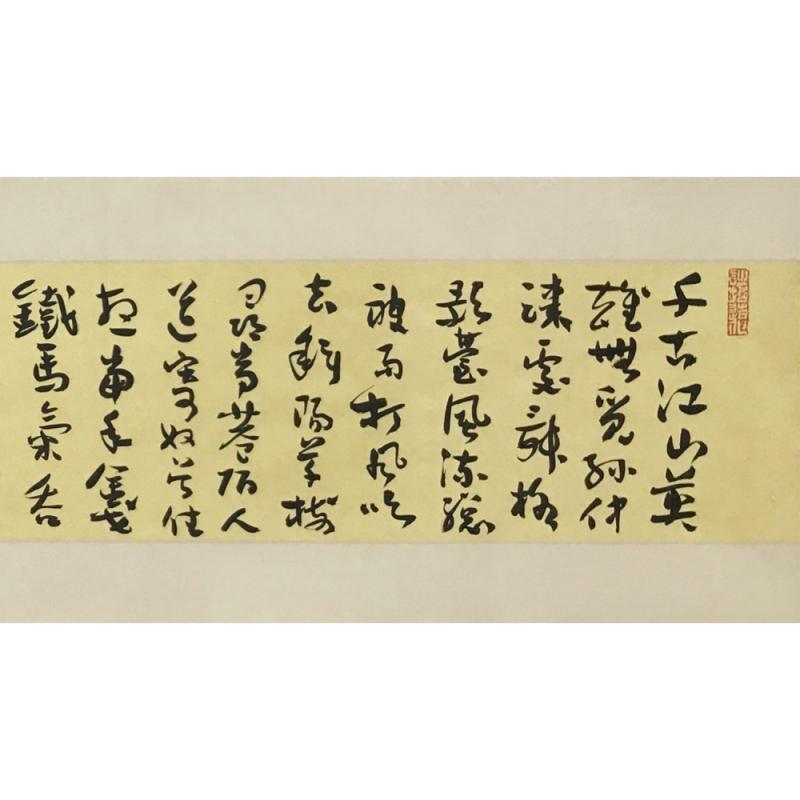 千古江山英
雄無覓孫仲
謀處舞榭
歌臺風流總
被雨打風吹
去斜陽草樹
尋常巷陌人
道寄奴曾住
想當年金戈
鐵馬氣吞